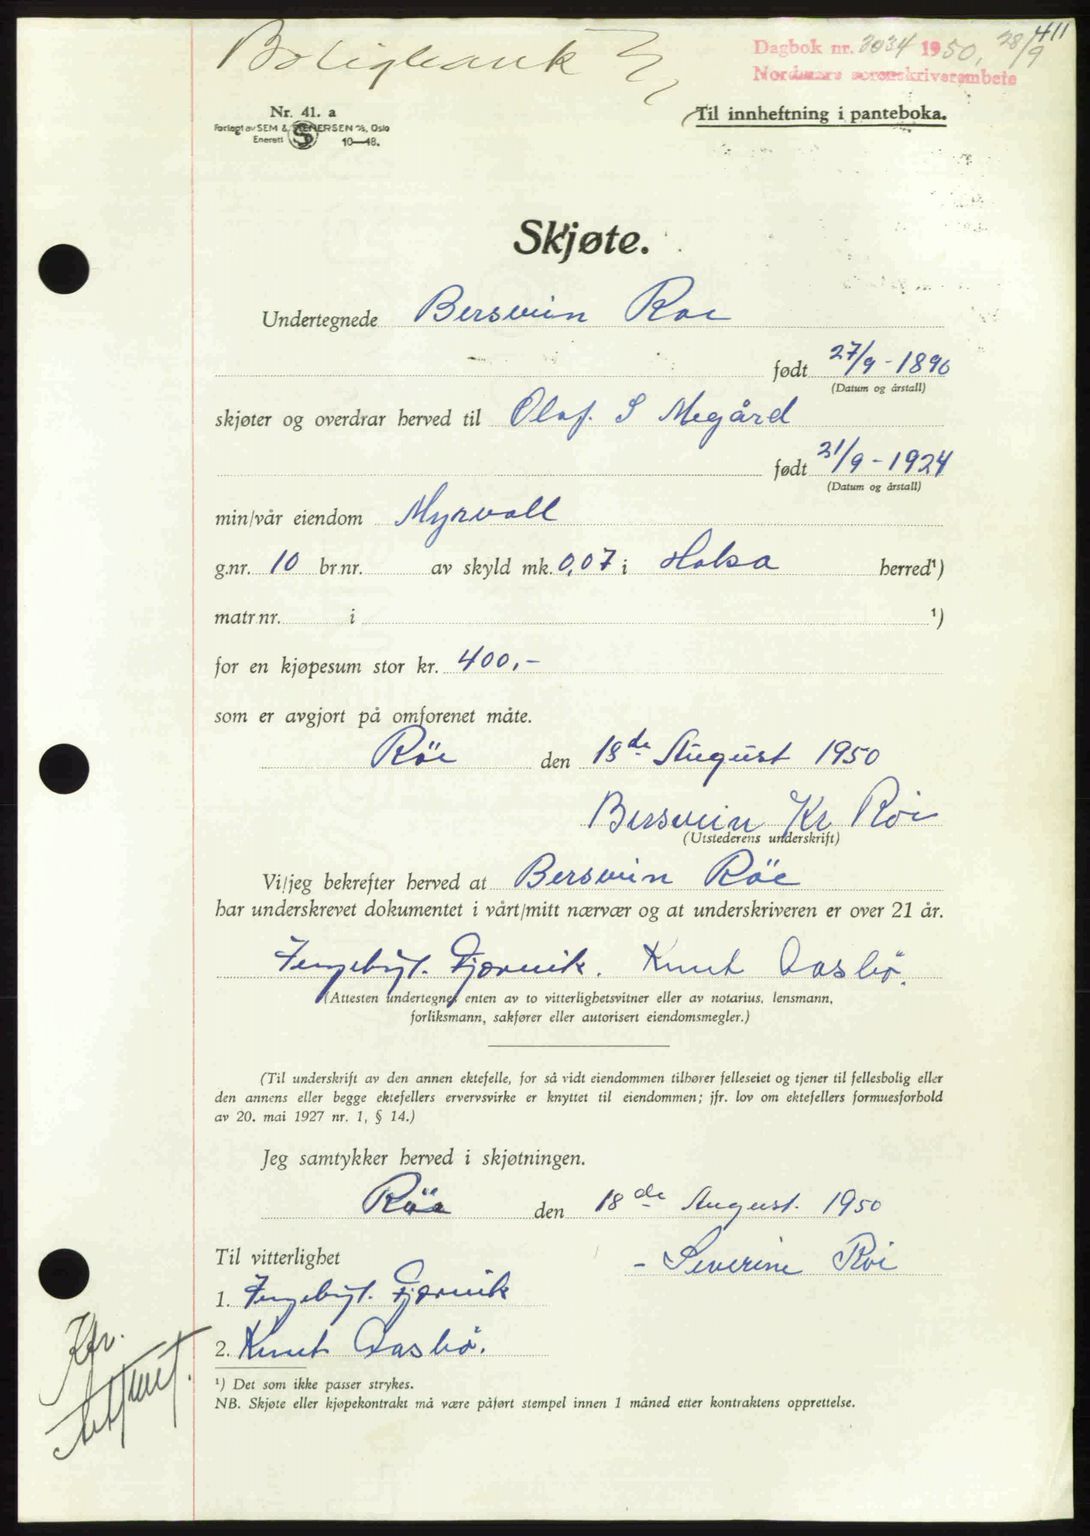 Boligbank
Dagbok nr. 2034 1950, 28/9
411
Nordmøre sorenskriverembete
Nr. 41. a
Forlagt av SEM & STENERSEN A/S, Oslo
Enerett 10—48.
Til innheftning i panteboka.
Skjøte.
Undertegnede Bersvein Røe
født 27/9-1896
(Datum og årstall)
skjøter og overdrar herved til Olaf. S Megård
født 21/9-1924
(Datum og årstall)
min/vår eiendom Myrvoll
g.nr. 10 br.nr. av skyld mk. 0,07 i Halsa herred¹)
matr.nr. i ¹)
for en kjøpesum stor kr. 400,-
som er avgjort på omforenet måte.
Röe den 18de August 1950
Bersvein Kr Röe
(Utstederens underskrift)
Vi/jeg bekrefter herved at Bersvein Röe
har underskrevet dokumentet i vårt/mitt nærvær og at underskriveren er over 21 år.
Ingebrigt. Fjærvik. Knut Aasbö.
(Attesten undertegnes enten av to vitterlighetsvitner eller av notarius, lensmann,
forliksmann, sakfører eller autorisert eiendomsmegler.)
(Til underskrift av den annen ektefelle, for så vidt eiendommen tilhører felleseiet og tjener til fellesbolig eller
den annens eller begge ektefellers ervervsvirke er knyttet til eiendommen; jfr. lov om ektefellers formuesforhold
av 20. mai 1927 nr. 1, § 14.)
Jeg samtykker herved i skjøtningen.
Röe den 18de August. 1950
Til vitterlighet
- Severine Röe
1. Ingebrigt. Fjærvik
2. Knut Aasbö.
¹) Det som ikke passer strykes.
NB. Skjøte eller kjøpekontrakt må være påført stempel innen 1 måned etter kontraktens opprettelse.